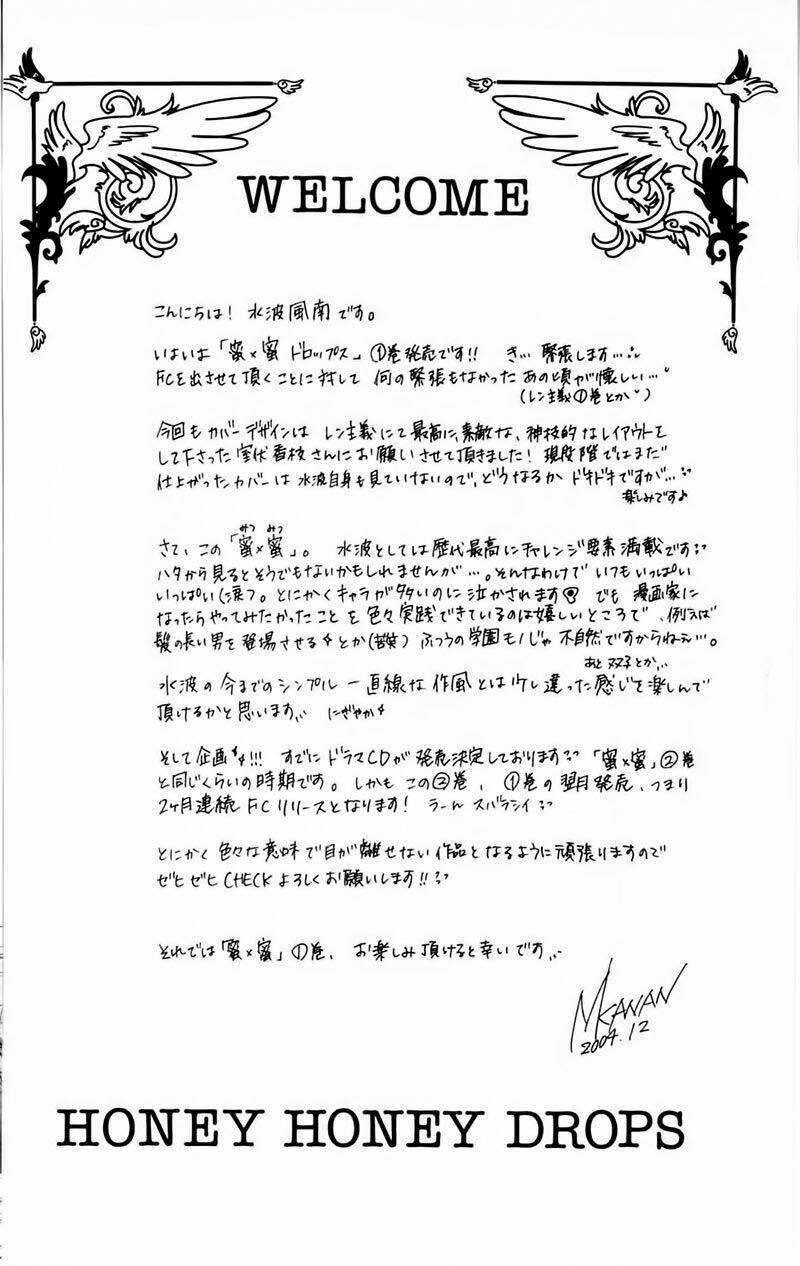 WELCOME
こんにちは! 水波風南です。
いよいよ「蜜×蜜ドロップス」①巻発売です!! き… 緊張します…
FCを出させて頂くことに対して 何の緊張もなかった あの頃が懐しい…
(レン主義①巻とか)
今回も カバーデザインは レン主義にて最高に、素敵な、神技的なレイアウトを
して下さった 室伏香枝さんにお願いさせて頂きました! 現段階ではまだ
仕上がったカバーは 水波自身も見ていないので、どうなるか ドキドキですが…
楽しみです♪
みつ みつ
さて、この「蜜×蜜」。 水波としては歴代最高にチャレンジ要素満載です
ハタから見るとそうでもないかもしれませんが…。そんなわけで いつもいっぱい
いっぱい(涙)。とにかくキャラが多いのに 泣かされます でも 漫画家に
なったらやってみたかったこと を色々実践できているのは嬉しいところで、例えば
髪の長い男を登場させる とか(苦笑) ふつうの学園モノじゃ 不自然ですからねぇ…。
あと 双子とか…
水波の今までのシンプル一直線な作風とは少し違った感じを楽しんで
頂けるかと思います… にぎやか
そして企画!!! すでにドラマCDが発売決定しております 「蜜×蜜」②巻
と同じくらいの時期です。しかも この②巻、①巻の翌月発売、つまり
2ヶ月連続FCリリースとなります! うーん スバラシイ
とにかく 色々な意味で目が離せない作品となるように頑張りますので
ゼヒゼヒCHECKよろしくお願いします!!
それでは「蜜×蜜」①巻、お楽しみ頂けると幸いです
M KANAN
2004.12
HONEY HONEY DROPS